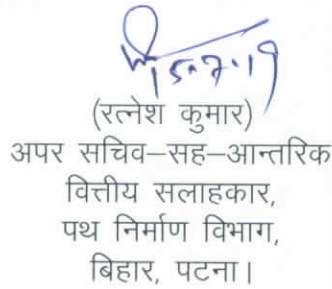 15.7.19
(रत्नेश कुमार)
अपर सचिव–सह–आन्तरिक
वित्तीय सलाहकार,
पथ निर्माण विभाग,
बिहार, पटना।